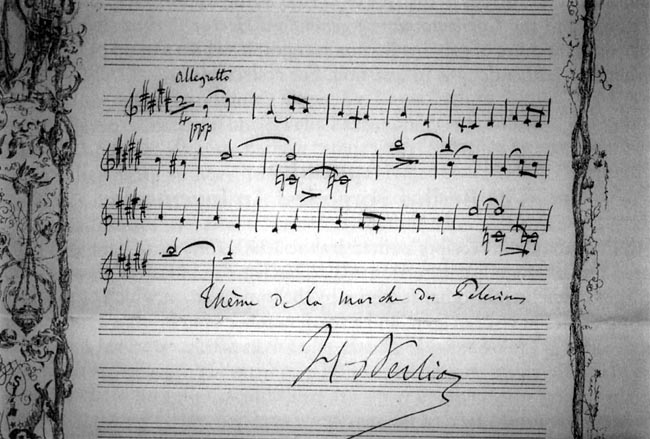 Allegretto
2/4
ppp
Thême de la marche des Pélerins
H. Berlioz